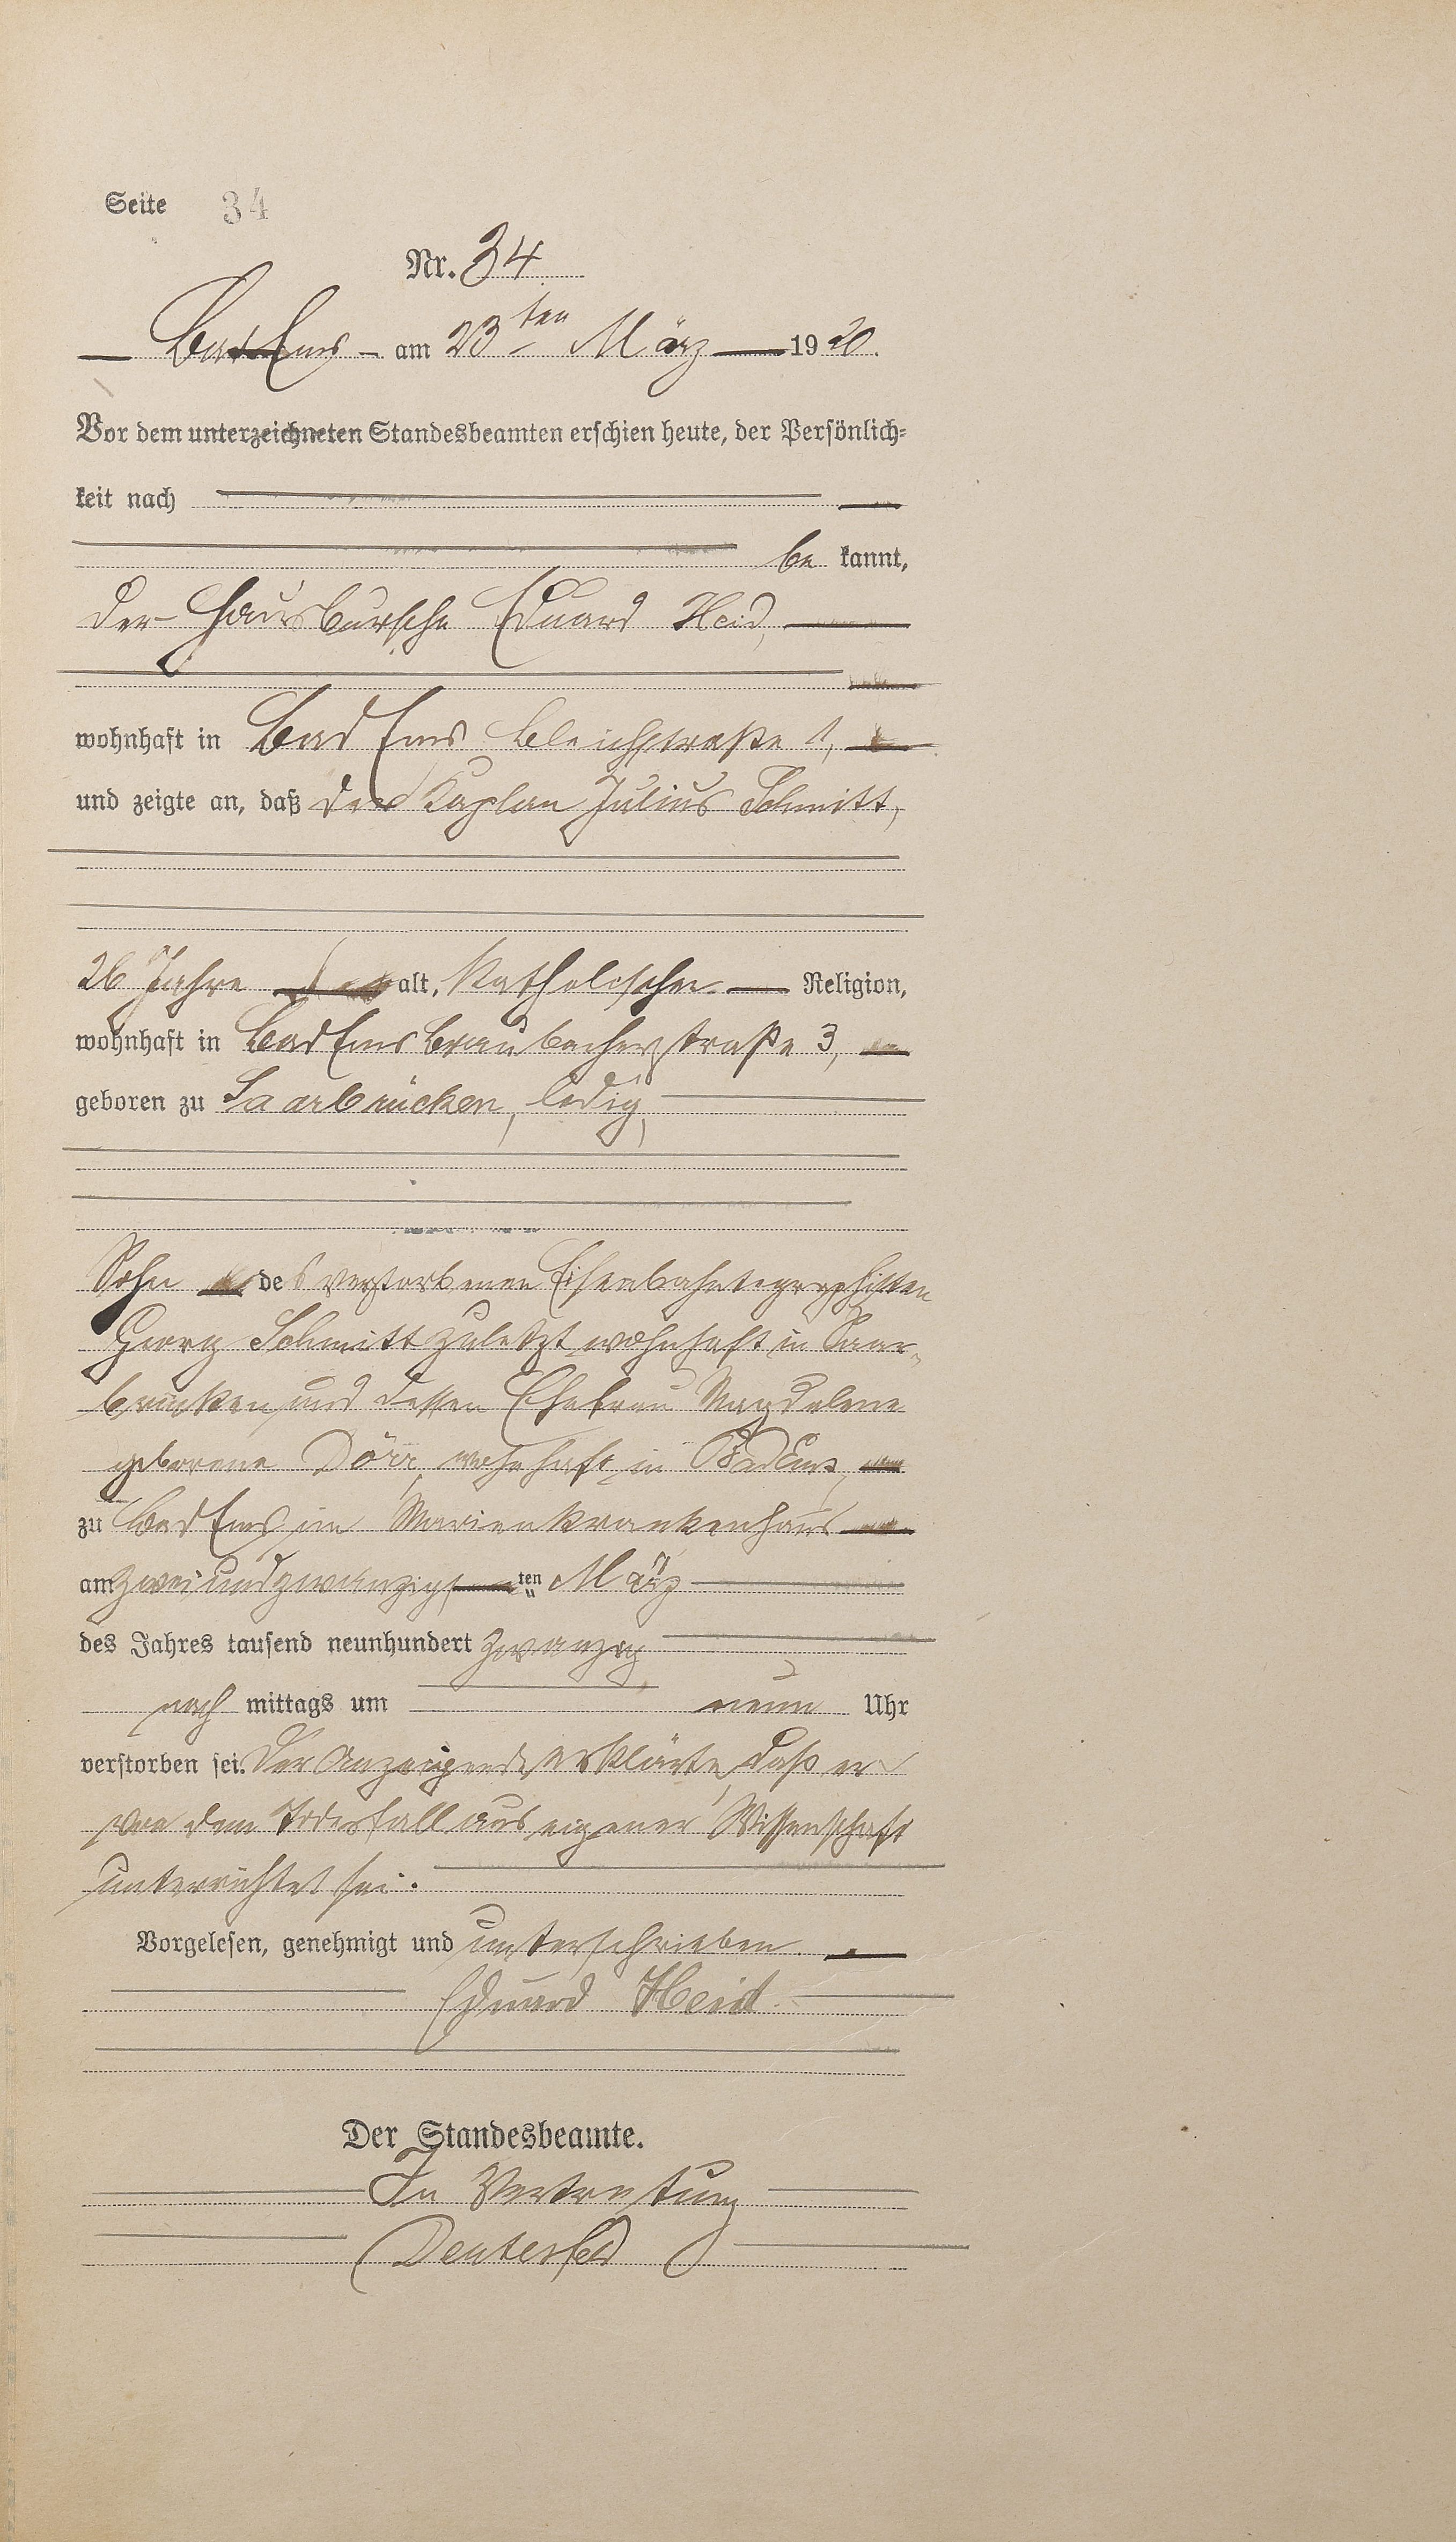 Seite 34
Nr. 34
Bad Ems am 23ten März 1920.
Vor dem unterzeichneten Standesbeamten erschien heute, der Persönlich-
keit nach
be kannt,
der Hausbursche Eduard Heid,
wohnhaft in Bad Ems Bleichstraße 1,
und zeigte an, daß der Kaplan Julius Schmitt,
26 Jahre alt, katholischer Religion,
wohnhaft in Bad Ems Braubacherstraße 3,
geboren zu Saarbrücken, ledig,
Sohn des verstorbenen Eisenbahntegraphisten
Georg Schmitt zuletzt wohnhaft in Saar-
brücken und dessen Ehefrau Magdalene
geborene Dörr, wohnhaft in Bad Ems,
zu Bad Ems im Marienkrankenhaus
am zweiundzwanzigsten März
des Jahres tausend neunhundert zwanzig
nach mittags um neun Uhr
verstorben sei. Der Anzeigende erklärte, daß er
von dem Todesfall aus eigener Wissenschaft
unterrichtet sei.
Vorgelesen, genehmigt und unterschrieben.
Eduard Heid
Der Standesbeamte.
In Vertretung